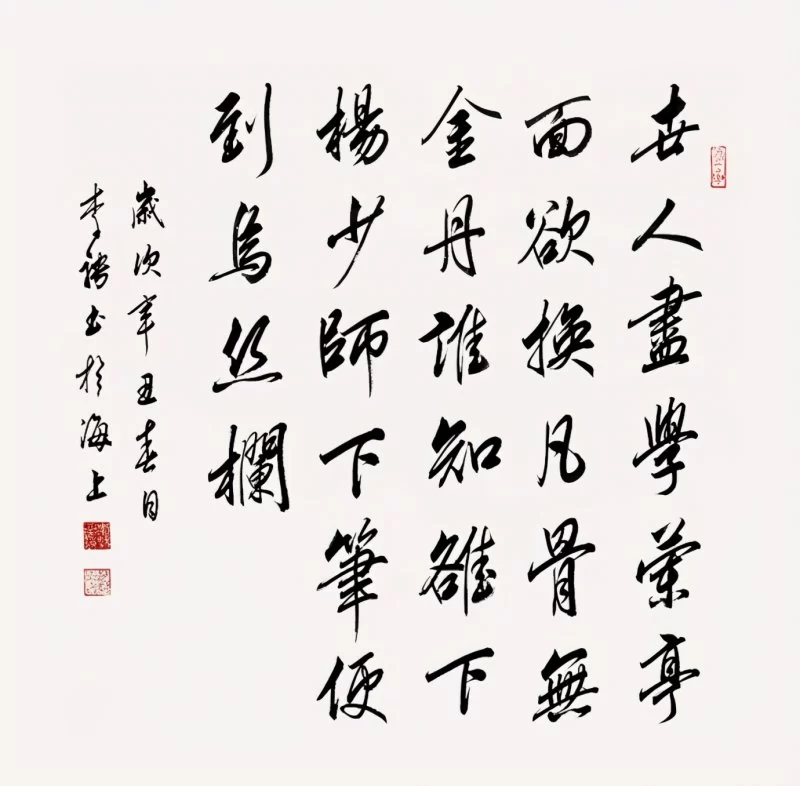 世人盡學蘭亭
面欲換凡骨無
金丹誰知雒下
楊少師下筆便
到烏絲欄
歲次辛丑春月
李書於海上